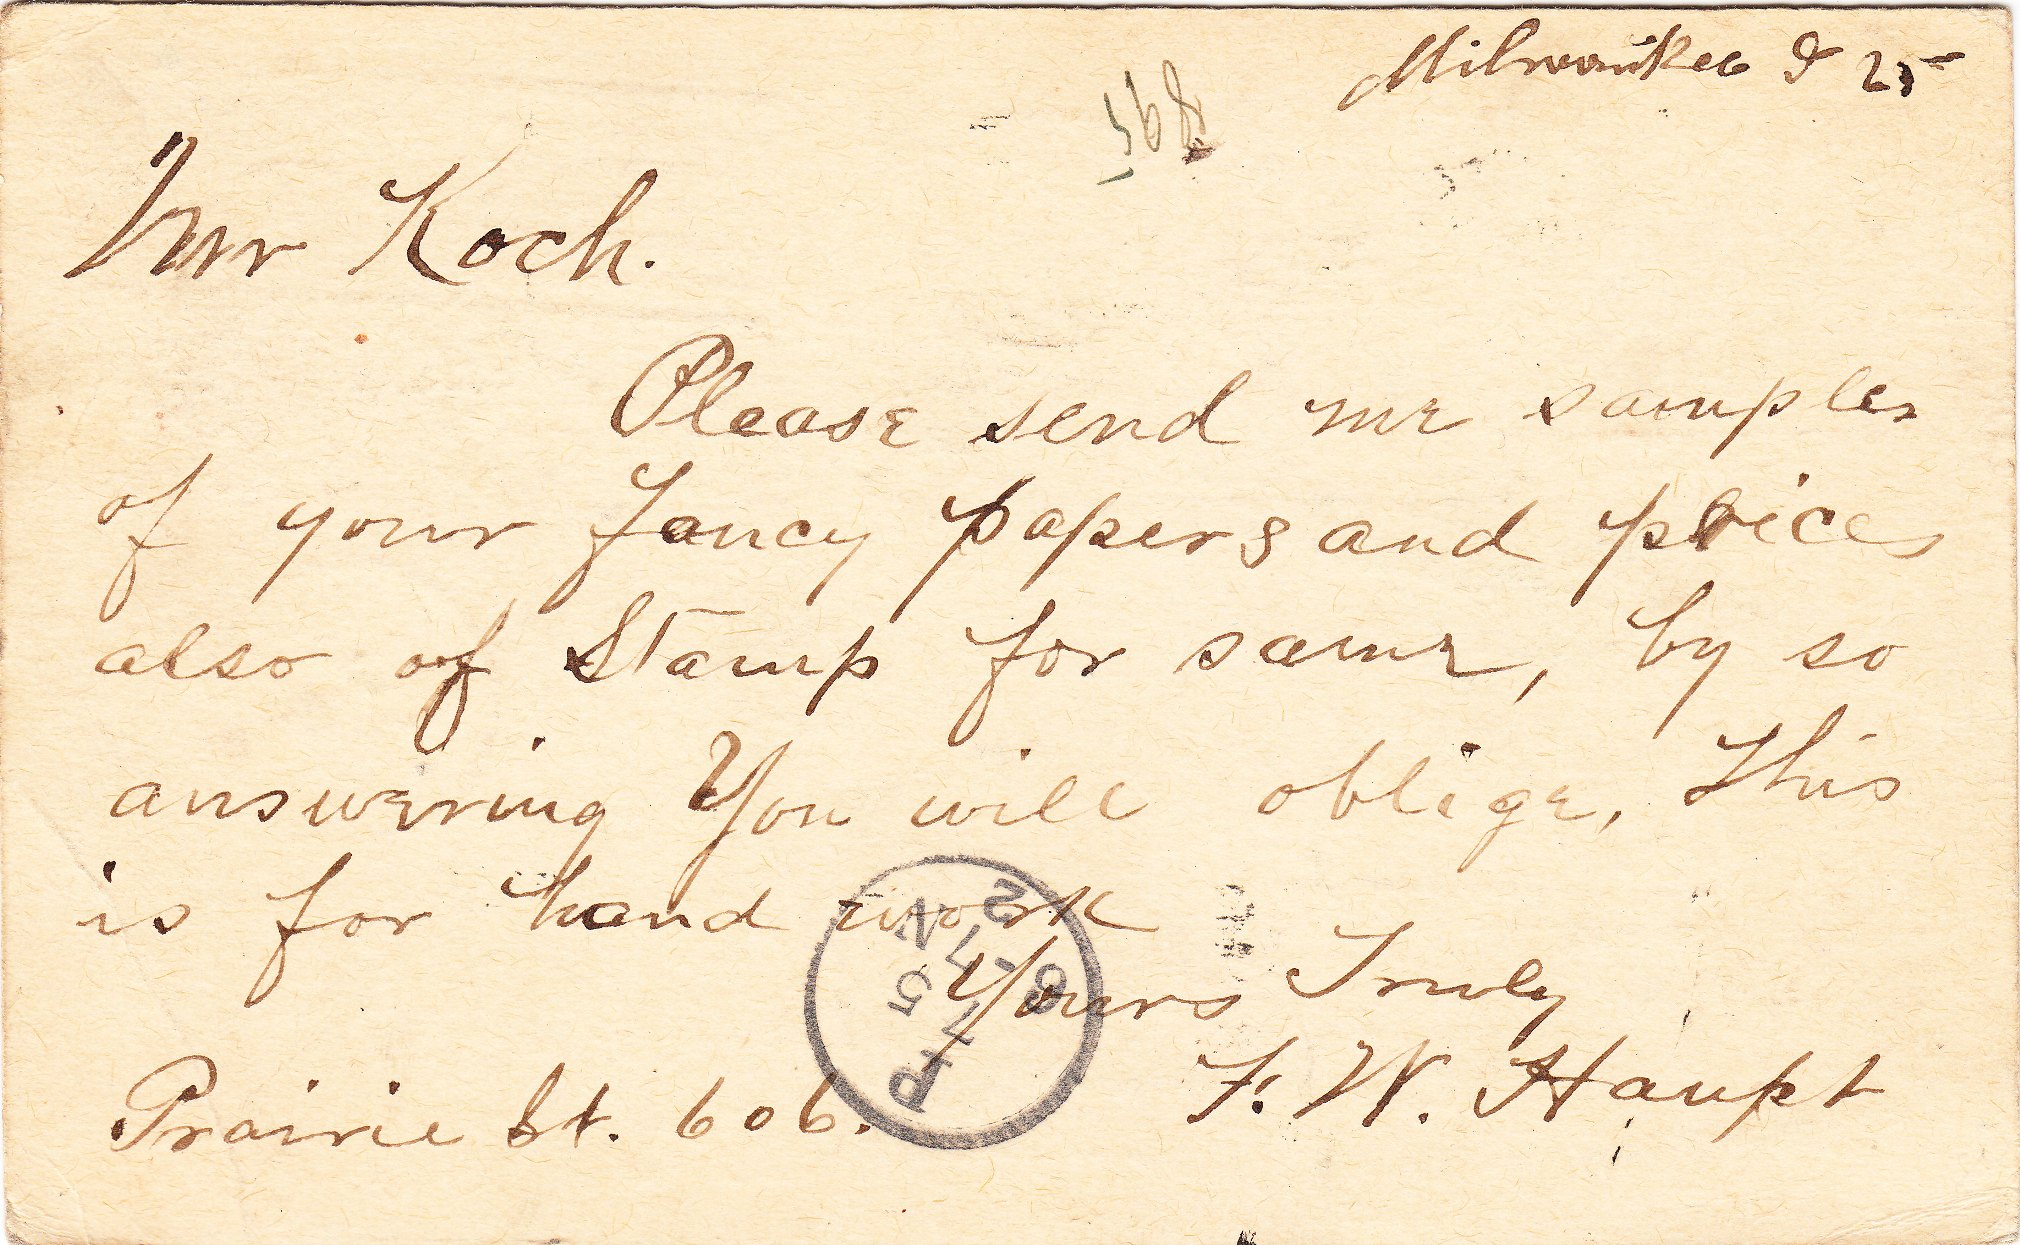 Milwaukee 25
Mr Koch.
Please send me samples
of your fancy papers and prices
also of Stamp for same, by so
answering You will oblige, This
is for hand work
Yours Truly
F. W. Haupt
Prairie St. 606.